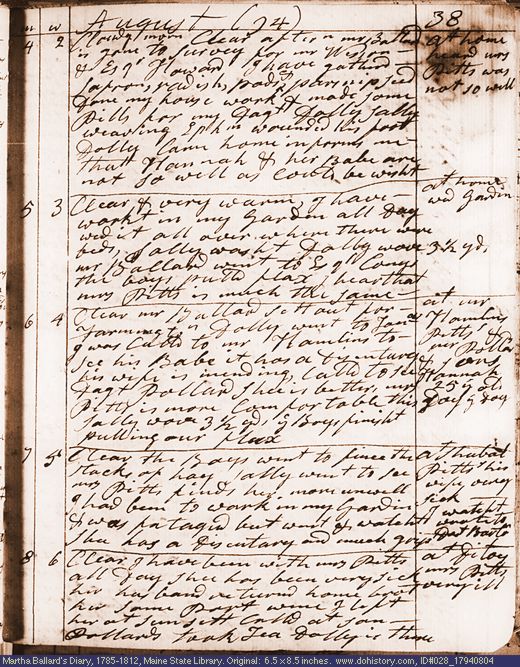 m w August (94) 38
4 2 Clowdy morn Clear after n mr Ballard
is gone to survey for mr Weston
& Esqr Howard I have gatherd
Safron, radish pods, & parsnip seed
done my house work & made some
Pills for my dagt Dolly Sally
weaving Ephm wounded his foot
Dolly Came home informs me
that Hannah & her Babe are
not so well as Could be wisht
at home
heard mrs
Pitts was
not so well
5 3 Clear & very warm I have
workt in my gardin all Day
wed it all over where there were
beds, Sally washt Dolly wove 3 ½ yd,
mr Ballard went to Esqr Conys
the boys pulld flax I hear that
mrs Pitts is much the same
at home
wed Gardin
6 4 Clear mr Ballard sett out for
Farmington Dolly went to
I was Calld to mr Hamlins to
see his Babe it has a Disentary
his wife is mending, Calld to see
Dagt Pollard shee is better, mrs
Pitts is more Comfortable this
Sally wove 3 ½ yd, ye Boys finisht
pulling our flax
at mr
Hamlins
Pitts &
mr Pollards
& sons
Hannah
25 yd
Day & Day
7 5 Clear the Boys went to fence the
stack of hay Sally went to see
mrs Pitts finds her more unwell
I had been to work in my Gardin
& was fatagd but went & watcht
Shee has a disentary and much
at hubad
Pitts his
wife very
sick
I watcht
wrote to
8 6 Clear I have been with mrs Pitts
all day shee has been very sick
his husband returnd home brot
her some Port wine I left
her at sunsett Calld at son
Pollards took Tea Dolly is there
at Ditoes
mrs Pitts
very ill
Martha Ballard's Diary, 1785-1812, Maine State Library. Original: 6.5 x 8.5 inches. www.dohistory.com, ID#028_17940804